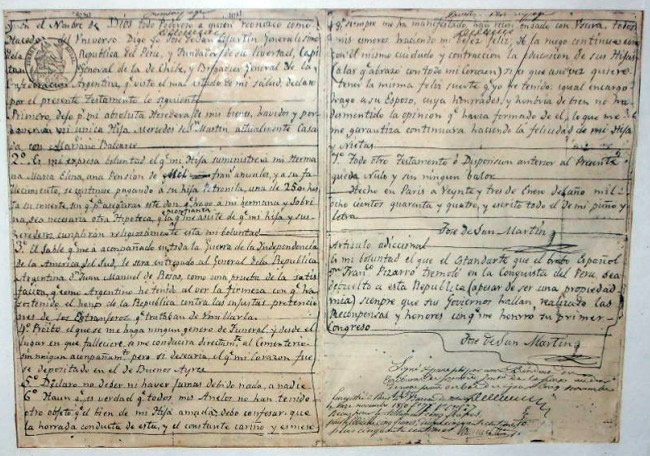 En el Nombre de Dios todo Poderoso a quien reconosco como
Hacedor del Universo. Digo yo José de San Martin, Generalissimo
de la Republica del Peru, y Fundador de su libertad, Capi
tan General de la de Chile, y Brigadier General de la
Confederacion Argentina, q.e visto el mal estado de mi salud, declaro
por el presente Testamento lo siguiente
Primero, dejo p.r mi absoluta Heredera de mis bienes, havidos y por
haver a mi unica Hija Mercedes de San Martin actualmente Casa
da con Mariano Balcarce
2.º Es mi expresa voluntad el q.e mi Hija suministre a mi Hermana
Maria Elena, una Pension de Mil francos anuales, y a su fa
llecimiento, se continue pagando a su hija Petronila, una de 250 has
ta su muerte, sin q.e para asegurar este don q.e hago a mi hermana y Sobri
na, sea necesaria otra Hipoteca, q.e la confianza q.e me asiste de q.e mi hija y sus
herederos cumpliran religiosamente esta mi voluntad
3.º El Sable q.e me a acompañado en toda la Guerra de la Independencia
de la America del Sud, le sera entregado al General de la Republica
Argentina D.n Juan Manuel de Rosas, como una prueba de la satis
faccion, q.e como Argentino he tenido al ver la firmeza con q.e ha
sostenido el honor de la Republica contra las injustas pretencio
nes de los Extranjeros q.e trataban de Umillarla
4.º Prohibo el que se me haga ningun genero de Funeral, y desde el
lugar en que falleciere, se me conducira directam.te al Cementerio
sin ningun acompañam.to pero si desearia el q.e mi Corazon fue
se depositado en el de Buenos Ayres
5.º Declaro no deber ni haver jamas debido nada, a nadie
6.º Haun q.e es verdad q.e todos mis Anelos no han tenido
otro objeto q.e el bien de mi Hija amada, debo confesar que
la honrada conducta de esta, y el constante cariño y esmero
q.e siempre me ha manifestado, han recompensado con Usura, todos
mis esmeros haciendo mi bejez feliz. Yo la ruego continue
con el mismo cuidado y contraccion la Educacion de sus Hijas
(a las q.e abrazo con todo mi Corazon) si es que a su vez quiere
tener la misma feliz suerte q.e yo he tenido: igual encargo
hago a su Esposo, cuya honradez, y hombria de bien no ha
desmentido la opinion q.e havia formado de el, lo que me
garantiza continuara haciendo la felicidad de mi Hija
y Nietas
7.º Todo otro Testamento ó Disposicion anterior al Presente
queda nulo y sin ningun balor
Hecho en Paris a Veynte y tres de Enero del año mil
ocho cientos quarenta y quatro, y escrito todo el de mi puño y
letra
José de San Martin
Articulo adiccional
Es mi boluntad el que el Estandarte que el bravo Español
D.n Fran.co Pizarro tremoló en la Conquista del Peru sea
debuelto a esta Republica (apesar de ser una propiedad
mia) siempre que sus Goviernos hallan realizado las
Recompensas y honores con q.e me honró su primer
Congreso
José de San Martin